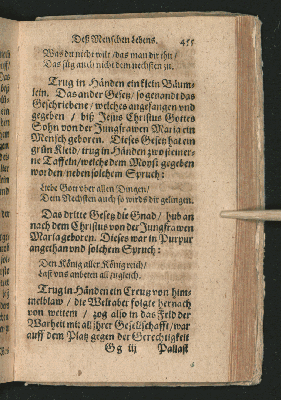 Deß Menschen Lebens. 455
Was du nicht wilt / das man dir thu /
Das füg auch nicht dem nechsten zu.
Trug in Händen ein klein Bäum-
lein. Das ander Gesetz / so genandt das
Geschriebene / welches angefangen vnd
gegeben / biß Jesus Christus Gottes
Sohn von der Jungfrawen Maria ein
Mensch geboren. Dieses Gesetz hat ein
grün Kleid / trug in Händen zwo steiner-
ne Taffeln / welche dem Moysi gegeben
worden / neben solchem Spruch:
Liebe Gott vber allen Dingen /
Dem Nechsten auch so wirds dir gelingen.
Das dritte Gesetz die Gnad / hub an
nach dem Christus von der Jungkrawen
Maria geboren. Dieses war in Purpur
angethan vnd solchem Spruch:
Den König aller Königreich /
Last vns anbeten all zugleich.
Trug in Händen ein Creutz von him-
melblaw / die Welt aber folgte hernach
von weitem / zog also in das Feld der
Warheit mit all jhrer Gesellschafft / war
auff dem Platz gegen der Gerechtigkeit
Gg iij Pallast